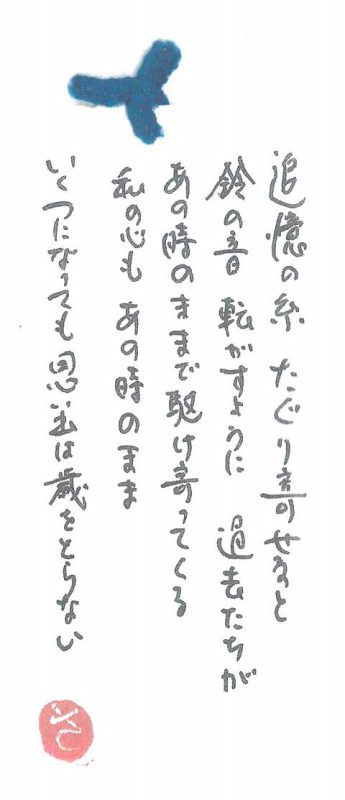 追憶の糸 たぐり寄せると
鈴の音 転がすように 過去たちが
あの時のままで駆け寄ってくる
私の心も あの時のまま
いくつになっても思い出は歳をとらない